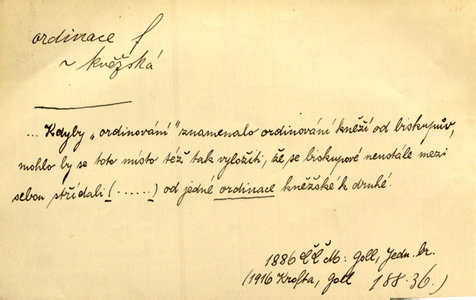 ordinace f
~ kněžská
... Kdyby „ordinování" znamenalo ordinování kněží od biskupův,
mohlo by se toto místo též tak vyložiti, že se biskupové neustále mezi
sebou střídali (......) od jedné ordinace kněžské k druhé.
1886 ČČM: Goll, Jedn. br.
(1916 Krofta, Goll 188.36.)